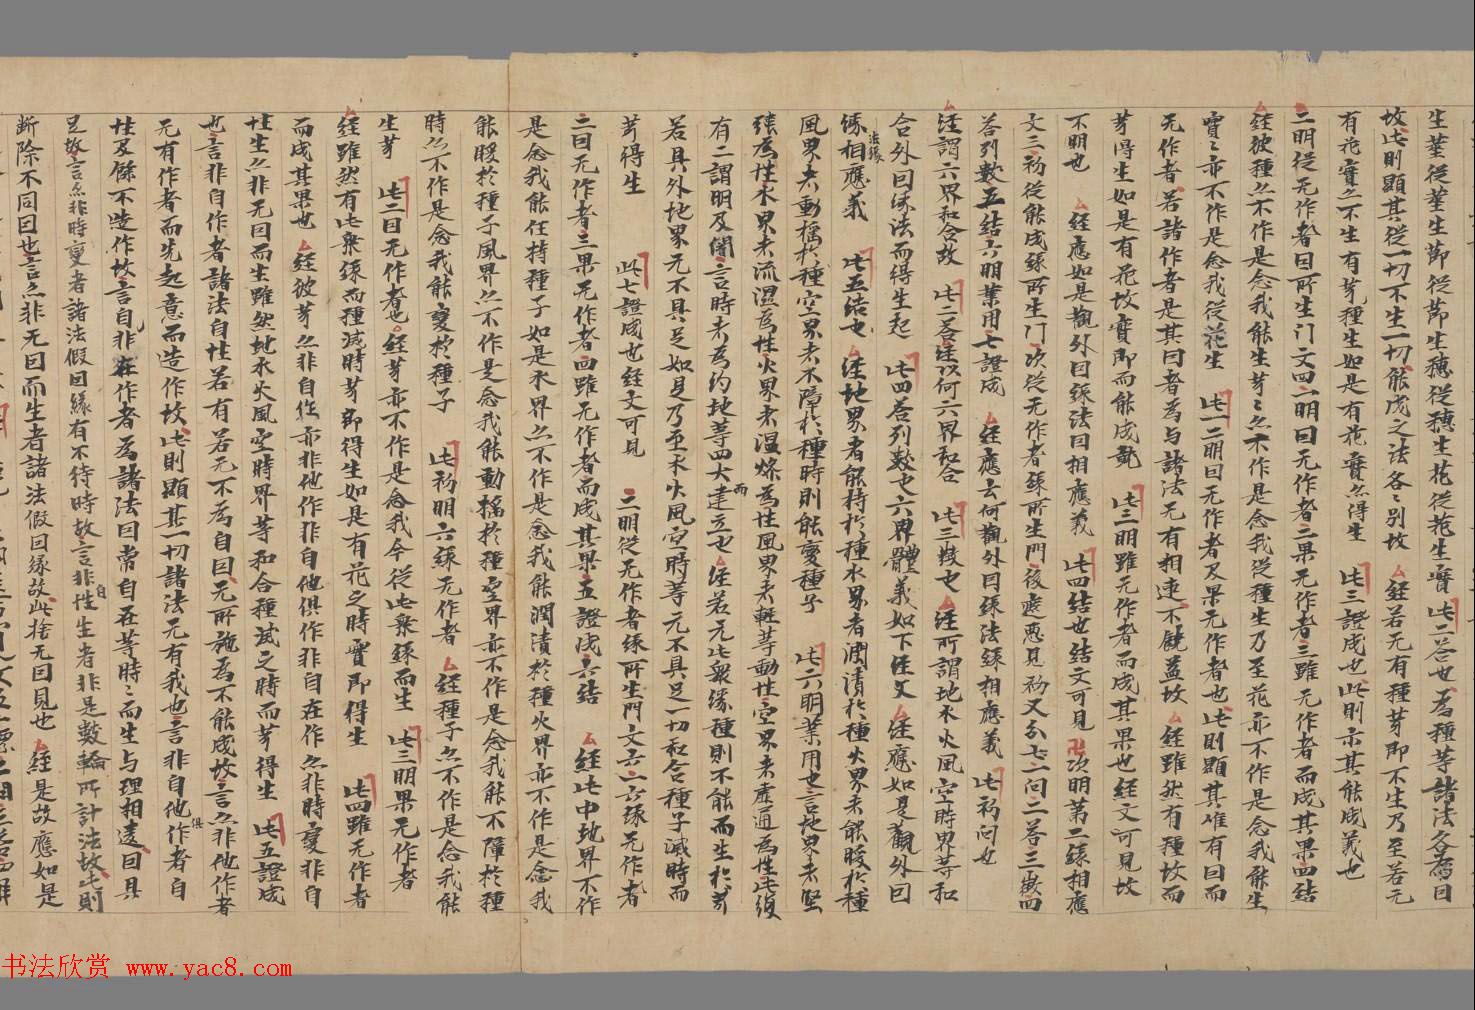 生莖從莖生節從節生穗從穗生花從花生實 此二答也為種等諸法各為因
故此則顯其從一切不生一切能成之法各々別故 經若无有種芽即不生乃至若无
有花實亦不生有芽種生如是有花實亦得生 此三證成也此則示其能成義也
二明從无作者因所生門文四一明因无作者二果无作者三雖无作者而成其果四結
經彼種亦不作是念我能生芽々亦不作是念我從種生乃至花亦不作是念我能生
實々亦不作是念我從花生 此一二明因无作者及果无作者也此則顯其唯有因而
无作者若諸作者是其因者為与諸法无有相違不饒益故 經雖然有種故而
芽得生如是有花故實即而能成就 此三明雖无作者而成其果也經文可見故
不明也 經應如是觀外因緣法因相應義 此四結也結文可見 次明第二緣相應
文三初從能成緣所生門次從无作者緣所生門後處悉見初文分七一問二答三徵四
答列數五結六明業用七證成 經應云何觀外因緣法緣相應義 此初問也
經謂六界和合故 此二答經以何六界和合 此三徵也 經所謂地水火風空時界等和
合外因緣法而得生起 此四答列數也六界體義如下經文 經應如是觀外因
緣相應義 此五結也 經地界者能持於種水界者潤漬於種火界者能暖於種
法緣
風界者動搖於種空界者不障於種時則能變種子 此六明業用也言地界者堅
強為性水界者流濕為性火界者溫燥為性風界者輕等動性空界者虛通為性此復
有二謂明及闇言時者為約地等四大而建立也 經若无此眾緣種則不能而生於芽
若具外地界无不具足如是乃至水火風空時等无不具足一切和合種子滅時而
芽得生 此七證成也經文可見 二明從无作者緣所生門文六一六緣无作者
二因无作者三果无作者四雖无作者而成其果五證成六結 經此中地界不作
是念我能任持種子如是水界亦不作是念我能潤漬於種火界亦不作是念我
能暖於種子風界亦不作是念我能動搖於種空界亦不作是念我能不障於種
時亦不作是念我能變於種子 此初明六緣无作者 經種子亦不作是念我能
生芽 此二因无作者也 經芽亦不作是念我今從此眾緣而生 此三明果无作者
經雖然有此眾緣而種滅時芽即得生如是有花之時實即得生 此四雖无作者
而成其果也 經彼芽亦非自作亦非他作非自他俱作非自在作亦非時變非自
性生亦非无因而生雖然地水火風空時界等和合種滅之時而芽得生 此五證成
也言非自作者諸法自性若有若无不為自因无所施為不能成故言亦非他作者
无有作者而先起意而造作故此則顯其一切諸法无有我也言非自他俱作者自
性及餘不造作故言自非在作者為諸法因常自在等時々而生与理相違因具
足故言亦非時變者諸法假因緣有不待時故言非自性生者非是數論所計法故此則
斷除不同因也言亦非无因而生者諸法假因緣故此捨无因見也 經是故應如是
书法欣赏 www.yac8.com